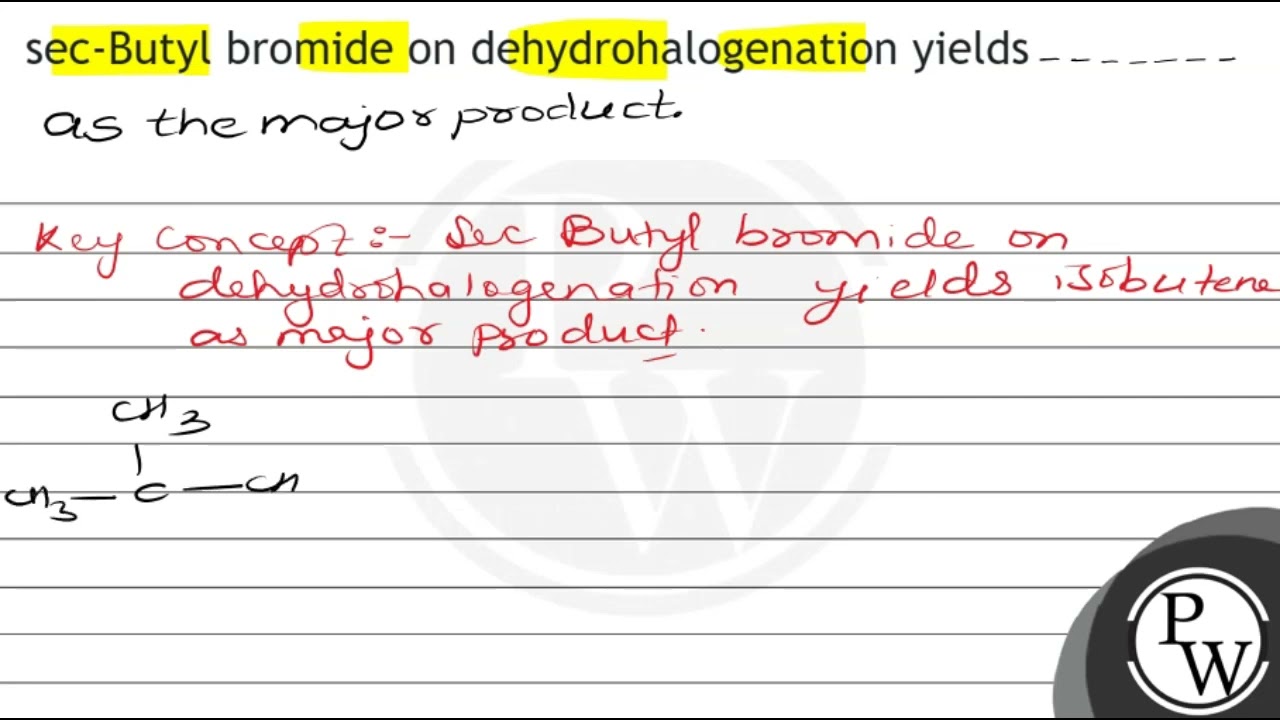 sec-Butyl bromide on dehydrohalogenation yields -------
as the major product.
Key concept :- Sec Butyl bromide on
dehydrohalogenation yields isobutene
as major product.
CH3
|
CH3 — C — CH
P
W
PW